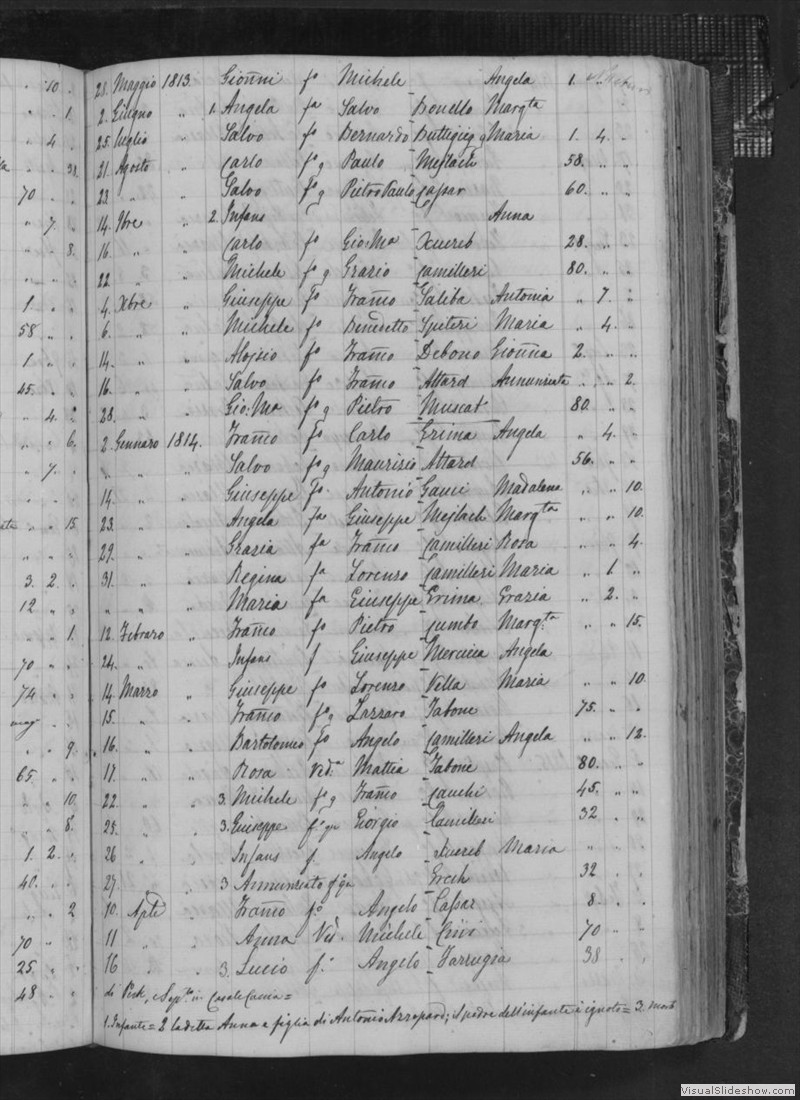 10. 21. Maggio 1813. Gioñni fo Michele Angela 1. "
" " 1. 2. Giugno " 1. Angela fa Salvo - Bonello Margta
" 4. " 25. Luglio " Salvo fo Bernardo - Buttigieg g Maria 1. 4. "
21. Agosto " Carlo fo g Paulo - Mejlach 58. " "
70 " " 23. " " Salvo fo g Pietro Paulo - Cassar 60. " "
" 7. " 14. 9bre " 2. Infans Anna
" " 8. 16. " " Carlo fo Gio: Ma - Xuereb 28. " "
" " " 22. " " Michele fo g Grazio - Camilleri 80. " "
1. " " 4. Xbre " Giuseppe fo Frañco - Saliba Antonia " 7. "
58 " " 6. " " Michele fo Benedetto - Spiteri Maria " 4. "
1 " " 14. " " Aloisio fo Frañco - Debono Gioñna 2. " "
45. " " 16. " " Salvo fo Frañco - Attard Annunziata " " 2.
" 4. 2 28. " " Gio: Ma fo g Pietro - Muscat 80. " "
" " 6. 2. Gennaro 1814. Frañco fo Carlo - Grima Angela " 4. "
" 7. " " " " Salvo fo g Maurizio - Attard 56. " "
" " " 14. " " Giuseppe fo Antonio - Gauci Madalena " " 10.
" " 15. 23. " " Angela fa Giuseppe - Mejlach Margta " " 10.
" " " 29. " " Grazia fa Frañco - Camilleri Rosa " " 4.
3. 2. " 31. " " Regina fa Lorenzo - Camilleri Maria " 1 "
12 " " " " " Maria fa Giuseppe - Grima Grazia " 2. "
" " 1. 12. Febraro " Frañco fo Pietro - Cumbo Margta " " 15.
70 " " 24. " " Infans f Giuseppe - Mercieca Angela
74 " " 14. Marzo " Giuseppe fo Lorenzo - Vella Maria " " 10.
15. " " Frañco fo g Lazzaro - Tabone 75. " "
" " 9. 16. " " Bartolomeo fo Angelo - Camilleri Angela " " 12.
65. " " 17. " " Rosa Vda Mattia - Tabone 80. " "
" " 10. 22. " " 3. Michele fo g Frañco - Cauchi 45. " "
" " 8. 25. " " 3. Giuseppe fo g Giorgio - Camilleri 32 " "
1. 2. " 26 " " Infans f. Angelo - Xuereb Maria "
40. " " 27. " " 3 Annunziato Grech 32 " "
" " 2 10. Aple " Frañco fo Angelo - Cassar 8. " "
70 " " 11 " " Anna Vd. Michele - 70 " "
25. " " 16 " " 3. Lucio f. Angelo - Farrugia 38 " "
48 " " di
1. Infante = 2 la detta Anna e figlia di Antonio Azzopardi; il padre dell'infante è ignoto = 3.
VisualSlideshow.com